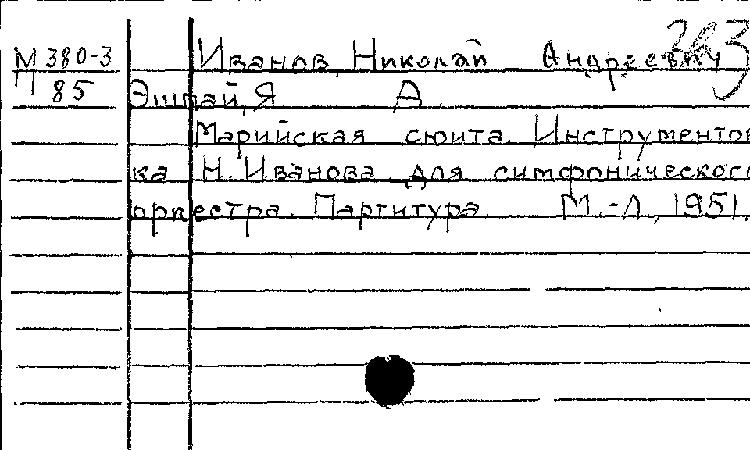 М 380-3 Иванов Николай Андреевич
П 85 Эшпай, Я А
Марийская сюита. Инструментов
ка Н. Иванова для симфонического
оркестра. Партитура М.-Л., 1951.